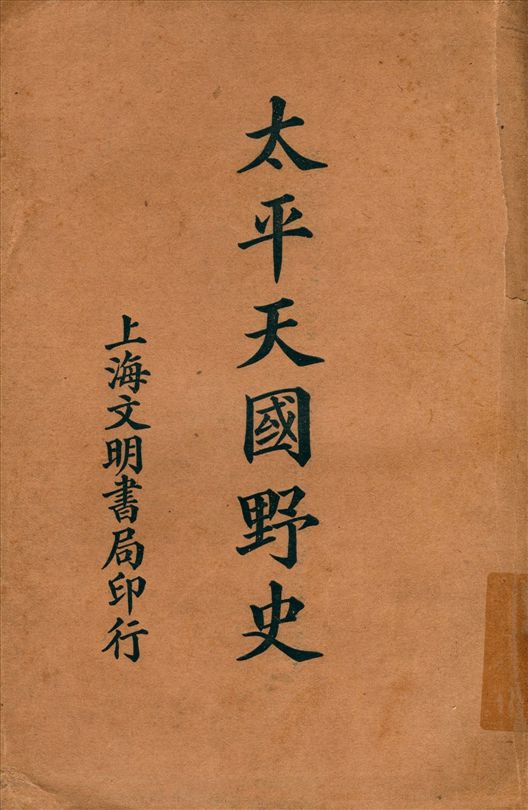 太平天國野史
上海文明書局印行